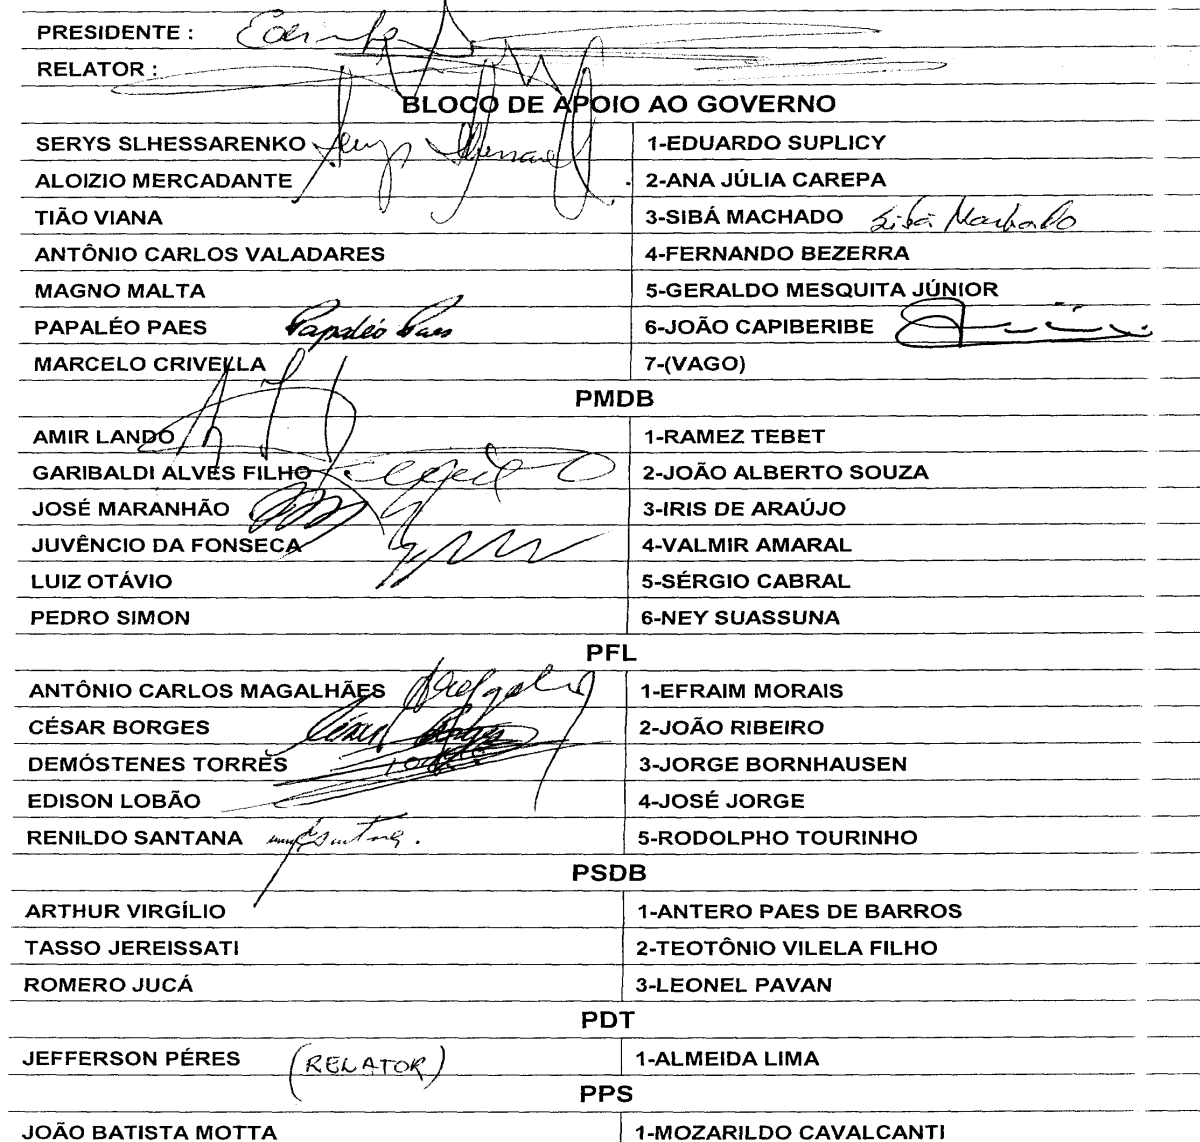 PRESIDENTE :
RELATOR :
BLOCO DE APOIO AO GOVERNO
SERYS SLHESSARENKO 1-EDUARDO SUPLICY
ALOIZIO MERCADANTE 2-ANA JÚLIA CAREPA
TIÃO VIANA 3-SIBÁ MACHADO Sibá Machado
ANTÔNIO CARLOS VALADARES 4-FERNANDO BEZERRA
MAGNO MALTA 5-GERALDO MESQUITA JÚNIOR
PAPALÉO PAES Papaléo Paes 6-JOÃO CAPIBERIBE
MARCELO CRIVELLA 7-(VAGO)
PMDB
AMIR LANDO 1-RAMEZ TEBET
GARIBALDI ALVES FILHO 2-JOÃO ALBERTO SOUZA
JOSÉ MARANHÃO 3-IRIS DE ARAÚJO
JUVÊNCIO DA FONSECA 4-VALMIR AMARAL
LUIZ OTÁVIO 5-SÉRGIO CABRAL
PEDRO SIMON 6-NEY SUASSUNA
PFL
ANTÔNIO CARLOS MAGALHÃES 1-EFRAIM MORAIS
CÉSAR BORGES César Borges 2-JOÃO RIBEIRO
DEMÓSTENES TORRES 3-JORGE BORNHAUSEN
EDISON LOBÃO 4-JOSÉ JORGE
RENILDO SANTANA 5-RODOLPHO TOURINHO
PSDB
ARTHUR VIRGÍLIO 1-ANTERO PAES DE BARROS
TASSO JEREISSATI 2-TEOTÔNIO VILELA FILHO
ROMERO JUCÁ 3-LEONEL PAVAN
PDT
JEFFERSON PÉRES (RELATOR) 1-ALMEIDA LIMA
PPS
JOÃO BATISTA MOTTA 1-MOZARILDO CAVALCANTI